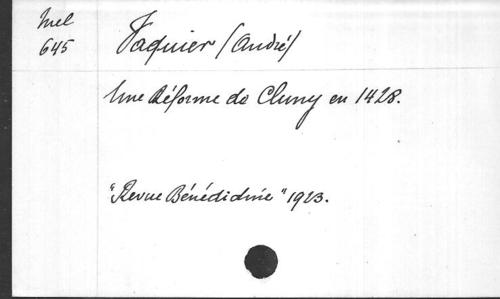 Mel
645
Vaquier (André)
Une Réforme de Cluny en 1428.
"Revue Bénédictine" 1923.